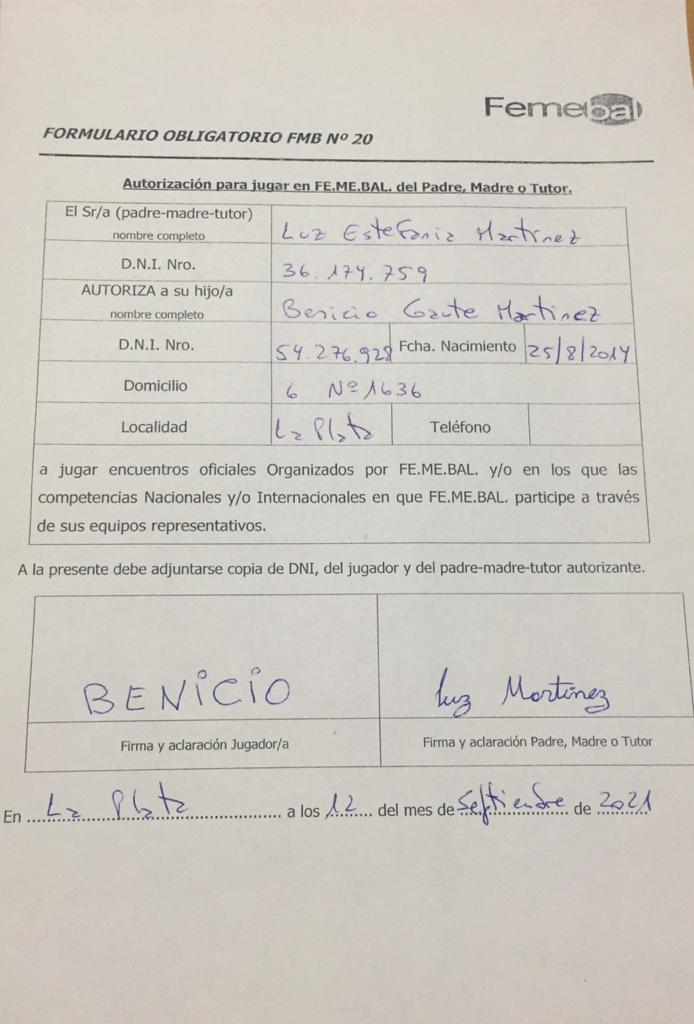 Femebal
FORMULARIO OBLIGATORIO FMB Nº 20
Autorización para jugar en FE.ME.BAL. del Padre, Madre o Tutor.
El Sr/a (padre-madre-tutor)
nombre completo
Luz Estefania Martinez
D.N.I. Nro.
36.174.759
AUTORIZA a su hijo/a
nombre completo
Benicio Martinez
D.N.I. Nro.
54.276.928
Fcha. Nacimiento
25/8/2014
Domicilio
6 Nº 1636
Localidad
La Plata
Teléfono
a jugar encuentros oficiales Organizados por FE.ME.BAL. y/o en los que las
competencias Nacionales y/o Internacionales en que FE.ME.BAL. participe a través
de sus equipos representativos.
A la presente debe adjuntarse copia de DNI, del jugador y del padre-madre-tutor autorizante.
BENICIO
Luz Martinez
Firma y aclaración Jugador/a
Firma y aclaración Padre, Madre o Tutor
En La Plata a los 12 del mes de Septiembre de 2021